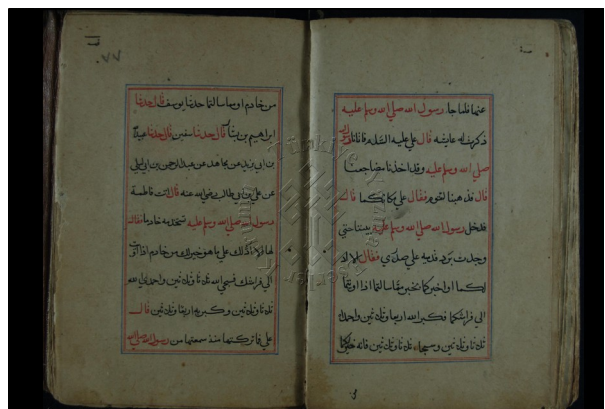 عنها فلما جا رسول الله صلي الله وسلم عليه
ذكرته له عايشه قال علي عليه السلم فاتانا
صلي الله وسلم عليه وقد اخذنا مضاجعنا
قال فذهبنا لنقوم فقال علي مكانكما قال
فدخل رسول الله صلي الله وسلم عليه بيننا حتي
وجدت برد قدميه علي صدري فقال الا اد
لكما او اخبركما بخير مما سالتما اذا اويتما
الي فراشكما فكبرا الله اربعا وثلاثين واحمداه
ثلاثا وثلاثين وسبحاه ثلاثا وثلاثين فانه خير لكما
٧٧
من خادم او مما سالتما حدثنا يوسف قال حدثنا
ابراهيم بن بشار قال حدثنا سفين قال حدثنا
بن ابي يزيد عن مجاهد عن عبد الرحمن بن ابي ليلي
عن علي بن ابي طالب رضي الله عنه قال اتت فاطمة
رسول الله صلي الله وسلم عليه تستخدمه خادما فقال
لها الا ادلك علي ما هو خير لك من خادم اذا اويت
الي فراشك فسبحي الله ثلاثا وثلاثين واحمدي الله
ثلاثا وثلاثين وكبريه اربعا وثلاثين قال
علي فما تركتها منذ سمعتها من رسول الله صلي الله